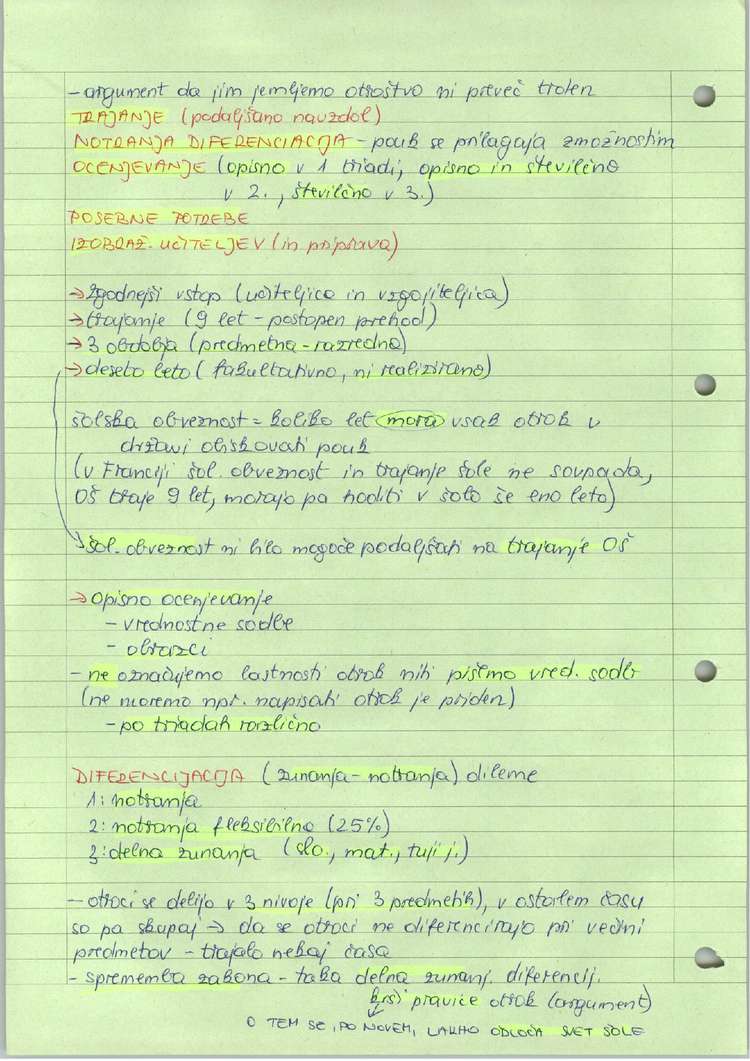 - argument da jim jemljemo otroštvo ni preveč trden
TRAJANJE (podaljšano navzdol)
NOTRANJA DIFERENCIACIJA - pouk se prilagaja zmožnostim
OCENJEVANJE (opisno v 1 triadi, opisno in številčno
v 2., številčno v 3.)
POSEBNE POTREBE
IZOBRAŽ. UČITELJEV (in priprava)
→ zgodnejši vstop (učiteljica in vzgojiteljica)
→ trajanje (9 let - postopen prehod)
→ 3 obdobja (predmetna - razredna)
→ deseto leto (fakultativno, ni realizirano)
šolska obveznost = koliko let mora vsak otrok v
državi obiskovati pouk
(v Franciji šol. obveznost in trajanje šole ne sovpada,
OŠ traje 9 let, morajo pa hoditi v šolo še eno leto)
→ šol. obveznost ni bilo mogoče podaljšati na trajanje OŠ
→ opisno ocenjevanje
- vrednostne sodbe
- obrazci
- ne označujemo lastnosti otrok niti pišemo vred. sodb
(ne moremo npr. napisati otrok je priden)
- po triadah različno
DIFERENCIJACIJA (zunanja - notranja) dileme
1: notranja
2: notranja fleksibilno (25%)
3: delna zunanja (slo., mat., tuji j.)
- otroci se delijo v 3 nivoje (pri 3 predmetih), v ostalem času
so pa skupaj → da se otroci ne diferencirajo pri večini
predmetov - trajalo nekaj časa
- sprememba zakona - taka delna zunanj. diferencij.
krši pravice otrok (argument)
O TEM SE, PO NOVEM, LAHKO ODLOČA SVET ŠOLE